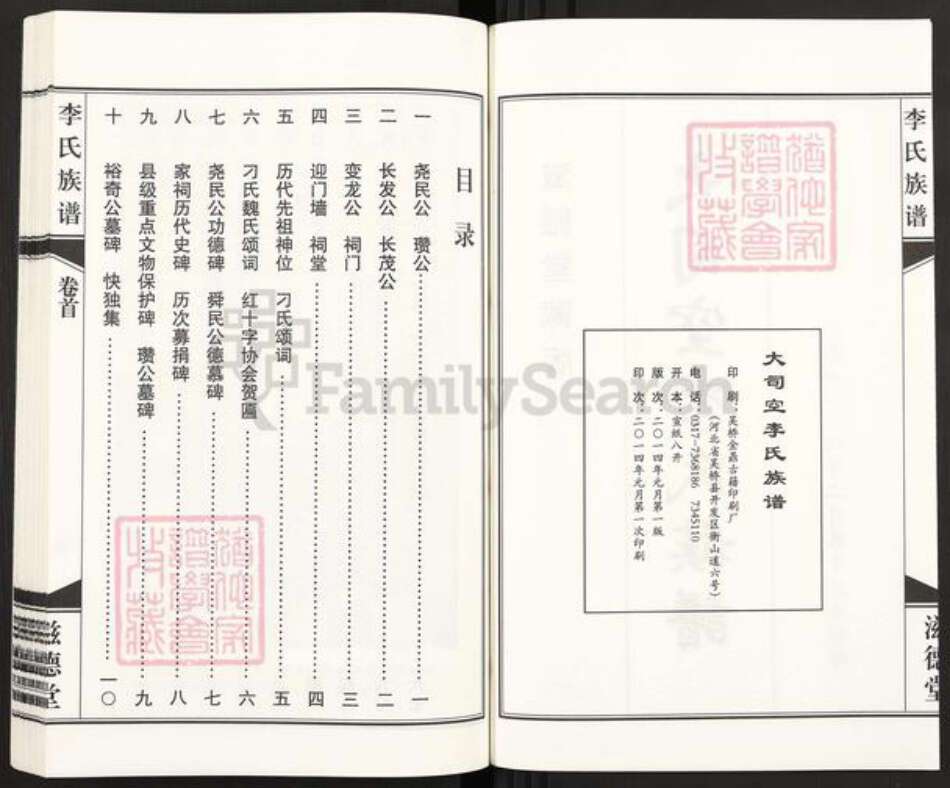 李氏族谱
滋德堂
大司空李氏族谱
印 刷：吴桥金鼎古籍印刷厂
（河北省吴桥县开发区衡山道六号）
电 话：0317-7368186 7345110
开 本：宣纸八开
版 次：二〇一四年元月第一版
印 次：二〇一四年元月第一次印刷
猶他家
譜學會
收藏
目 录
一 尧民公 瓒公……一
二 长发公 长茂公……二
三 变龙公 祠门……三
四 迎门墙 祠堂……四
五 历代先祖神位 刁氏颂词……五
六 刁氏魏氏颂词 红十字协会贺匾……六
七 尧民公功德碑 舜民公德慕碑……七
八 家祠历代史碑 历次募捐碑……八
九 县级重点文物保护碑 瓒公墓碑……九
十 裕奇公墓碑 快独集……一〇
猶他家
譜學會
收藏
李氏族谱
卷首
滋德堂
FamilySearch